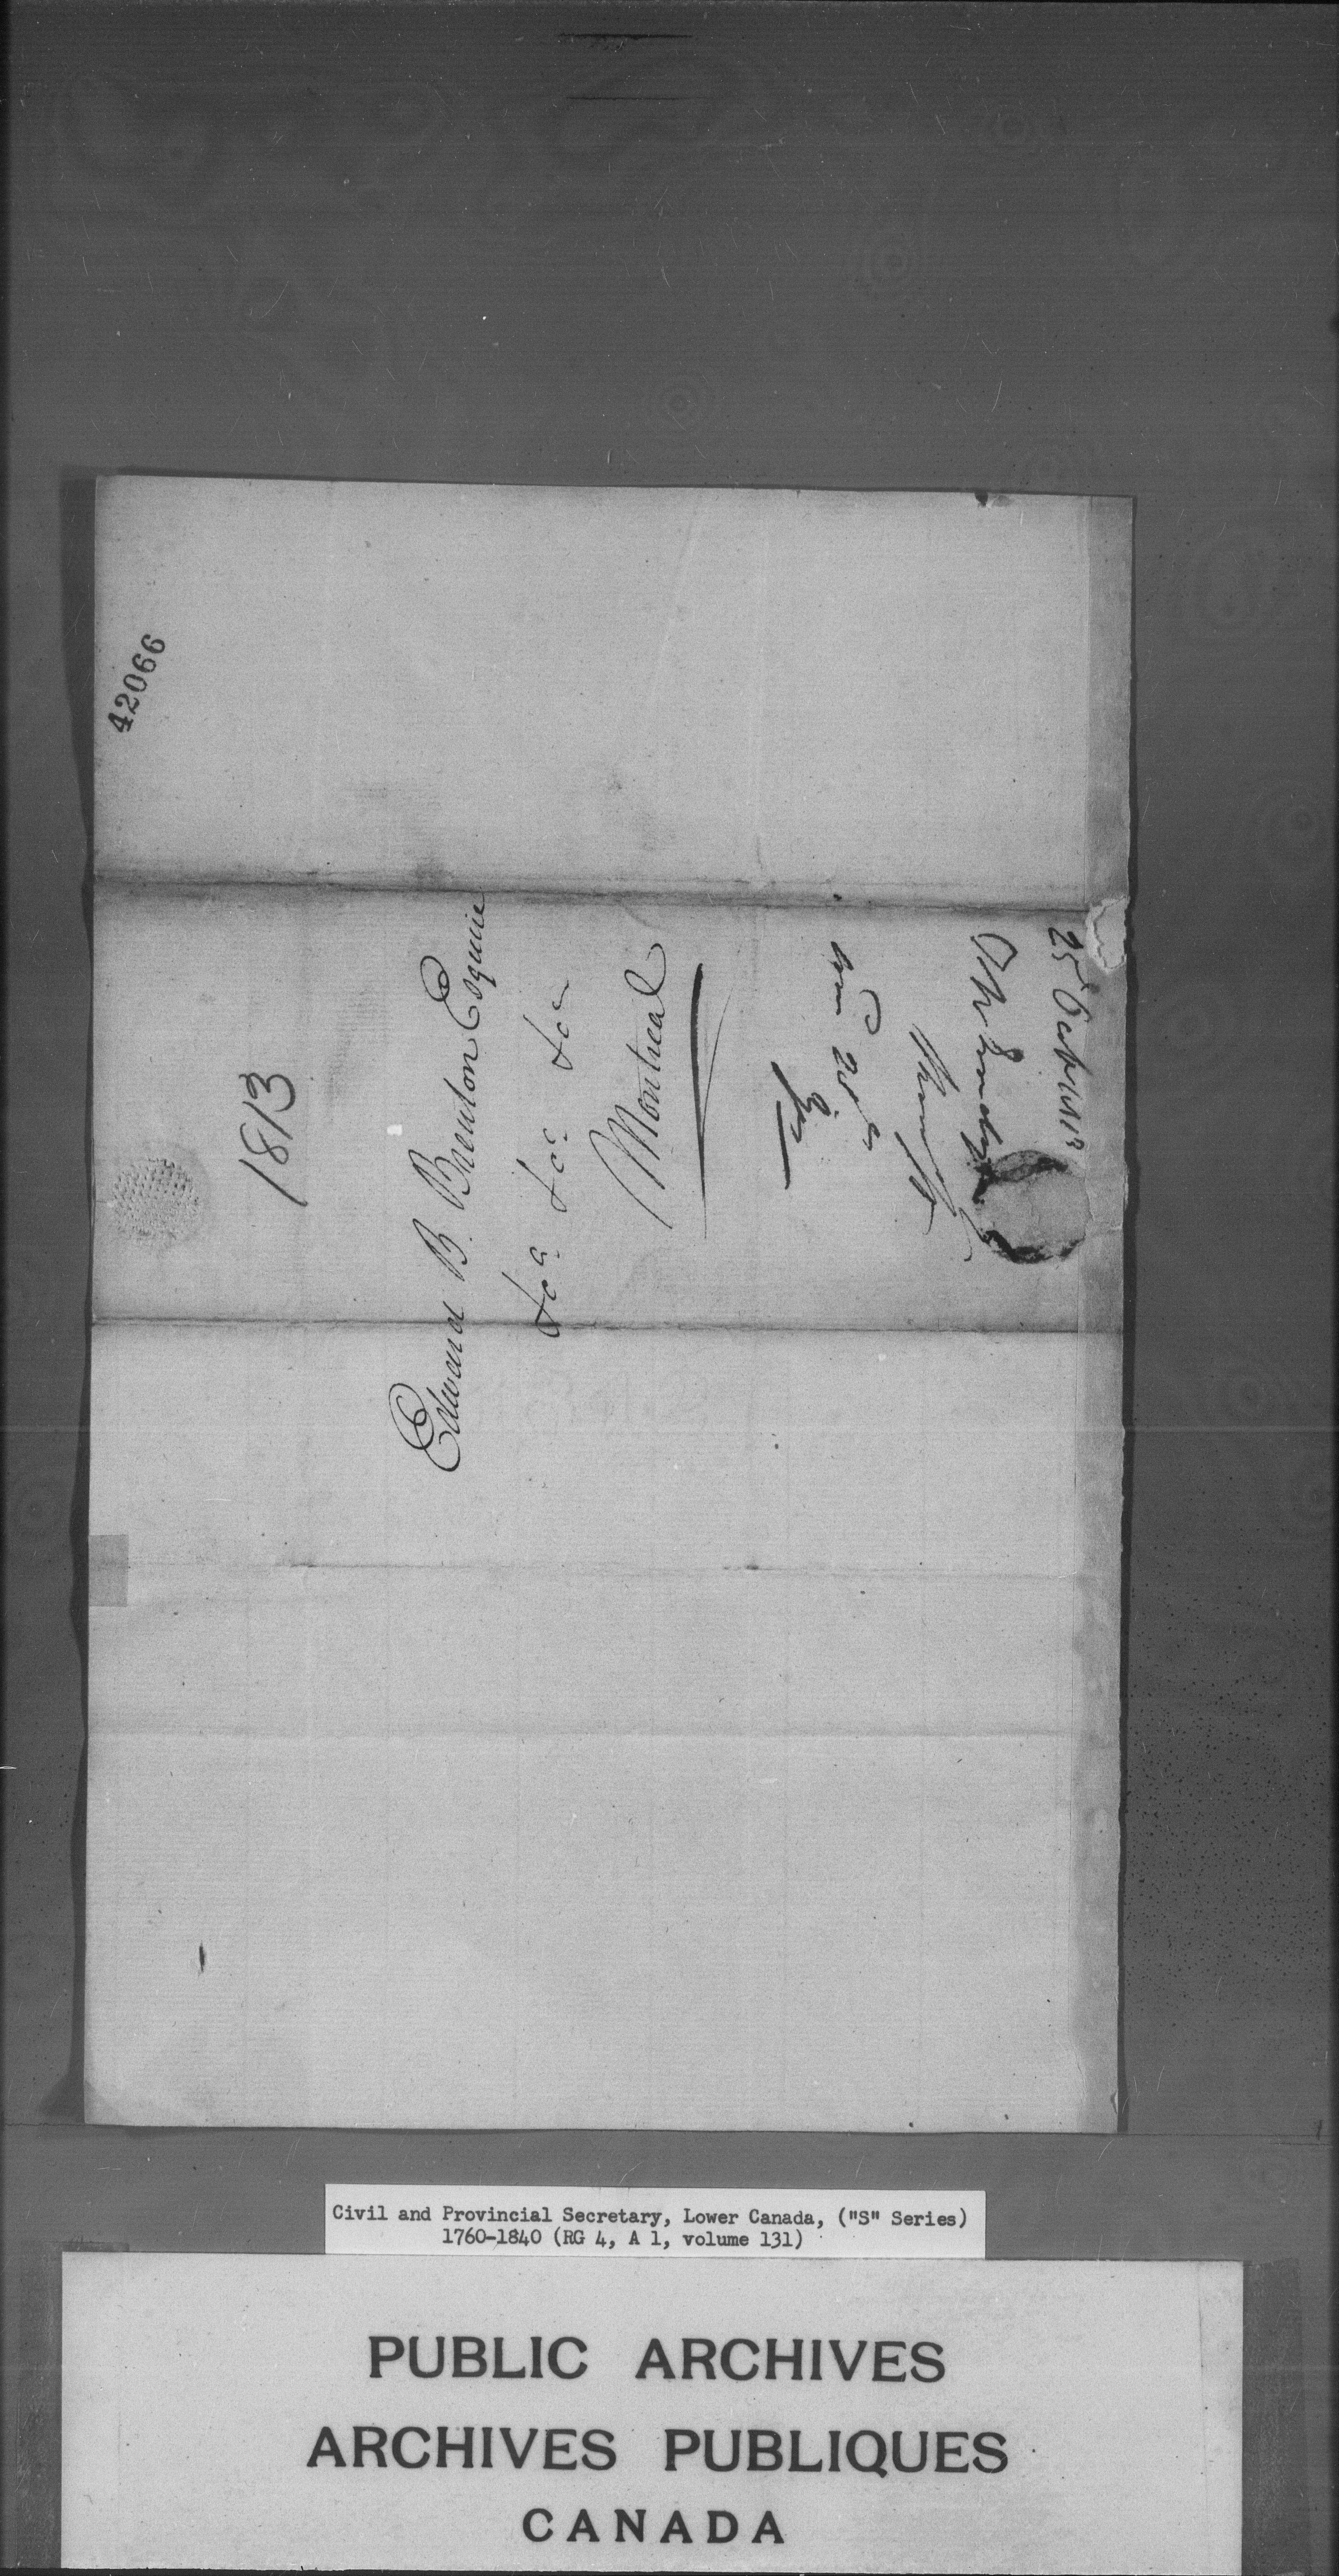 42066
1813
Edward B. Brenton Esquire
&ca &ca &ca
Montreal
25 Octr 1813
Civil and Provincial Secretary, Lower Canada, ("S" Series)
1760-1840 (RG 4, A 1, volume 131)
PUBLIC ARCHIVES
ARCHIVES PUBLIQUES
CANADA